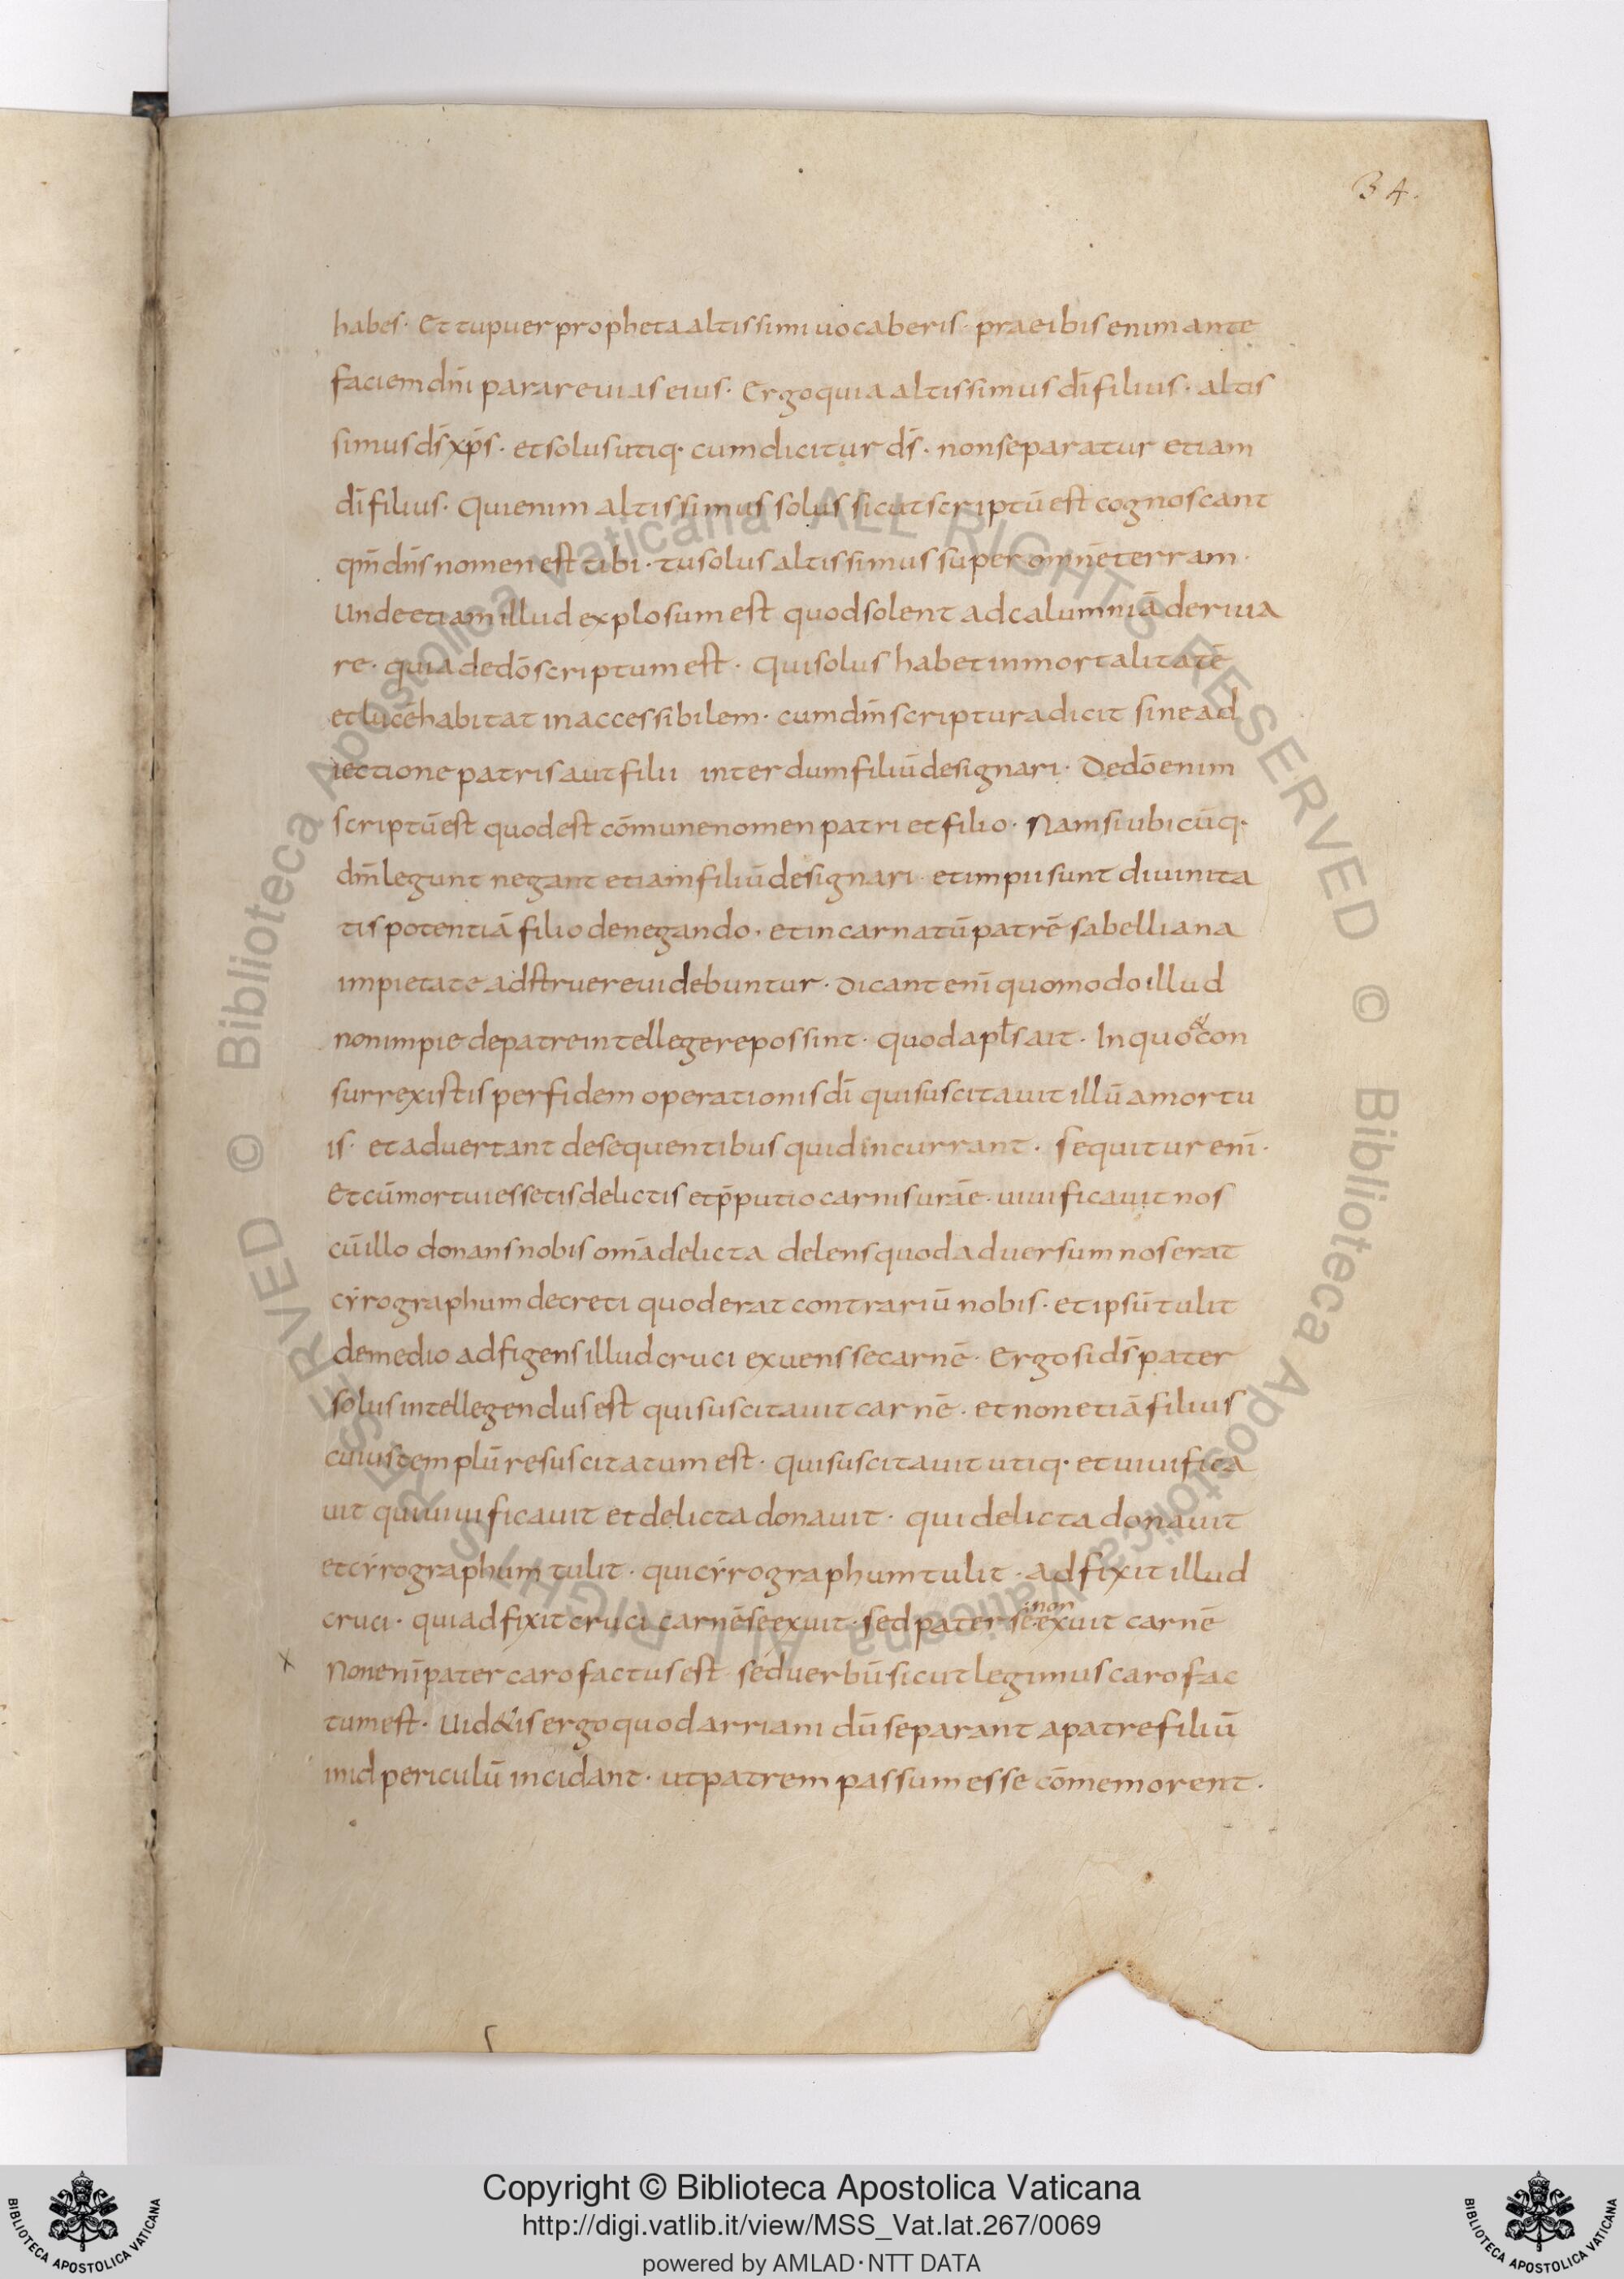 34.
habes· Et tu puer propheta altissimi uocaberis· praeibis enim ante
faciem dn̄i parare uias eius· Ergo quia altissimus dī filius· altis
simus ds̄ xp̄s· et solus utiq· cum dicitur ds̄· non separatur etiam
dī filius· Qui enim altissimus solus sicut scriptū est cognoscant
qm̄ dn̄s nomen est tibi· tu solus altissimus super omnē terram·
Unde etiam illud explosum est quod solent ad calumniā deriua
re· quia de dō scriptum est· Qui solus habet inmortalitatē
et lucē habitat inaccessibilem· cum dm̄ scriptura dicit sine ad
iectione patris aut filii interdum filiū designari· De dō enim
scriptū est quod est cōmune nomen patri et filio· Nam si ubicūq·
dm̄ legunt negant etiam filiū designari· et impii sunt diuinita
tis potentiā filio denegando· et incarnatū patrē sabelliana
impietate adstruere uidebuntur· Dicant enī quomodo illud
non impie de patre intellegere possint· quod apłs ait· In quo & con
surrexistis per fidem operationis dī qui suscitauit illū a mortu
is· et aduertant de sequentibus quid incurrant· sequitur enī·
Et cū mortui essetis delictis et p̄putio carnis urāe· uiuificauit nos
cū illo donans nobis omīa delicta delens quod aduersum nos erat
cyrographum decreti quod erat contrariū nobis· et ipsū tulit
de medio adfigens illud cruci exuens se carnē· Ergo si ds̄ pater
solus intellegendus est qui suscitauit carnē· et non etiā filius
cuius templū resuscitatum est· qui suscitauit utiq· et uiuifica
uit qui uiuificauit et delicta donauit· qui delicta donauit
et cyrographum tulit· qui cyrographum tulit· adfixit illud
cruci· qui adfixit cruci carnē se exuit· sed pater se non exuit carnē
Non enī pater caro factus est sed uerbū sicut legimus caro fac
tum est· Uid&is ergo quod arriani dū separant a patre filiū
in id periculū incidant· ut patrem passum esse cōmemorent·
Copyright © Biblioteca Apostolica Vaticana
http://digi.vatlib.it/view/MSS_Vat.lat.267/0069
powered by AMLAD·NTT DATA
BIBLIOTECA APOSTOLICA VATICANA
BIBLIOTECA APOSTOLICA VATICANA
© Biblioteca Apostolica Vaticana ALL RIGHTS RESERVED
© Biblioteca Apostolica Vaticana ALL RIGHTS RESERVED